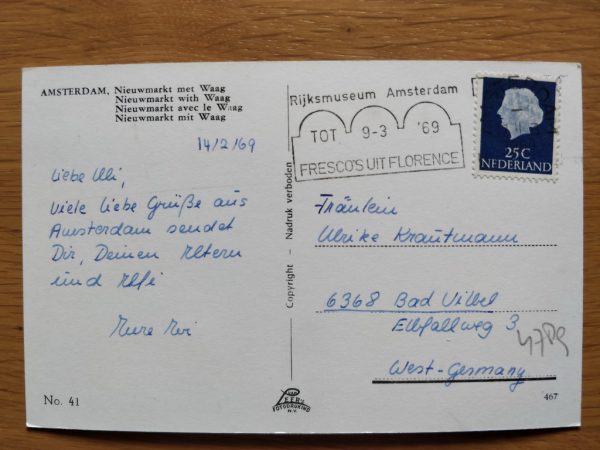 AMSTERDAM, Nieuwmarkt met Waag
Nieuwmarkt with Waag
Nieuwmarkt avec le Waag
Nieuwmarkt mit Waag
14/2/69
Liebe Uli,
viele liebe Grüße aus
Amsterdam sendet
Dir, Deinen Eltern
und Elfi
Eure
No. 41
Copyright - Nadruk verboden
FOTODRUKIND
N.V.
Rijksmuseum Amsterdam
TOT 9-3 '69
FRESCO'S UIT FLORENCE
25C
NEDERLAND
Fräulein
Ulrike Krautmann
6368 Bad Vilbel
3
West-Germany
467